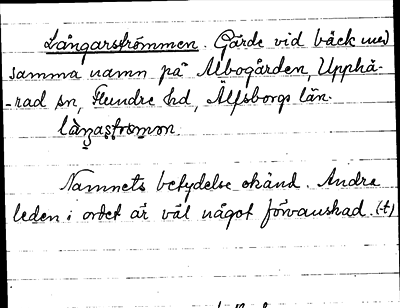 Långarströmmen. Gärde vid bäck med
samma namn på Albogården, Upphä-
-rad sn, Flundre hd, Älfsborgs län.
làŋastrømøn.
Namnets betydelse okänd. Andra
leden i ordet är väl något förvanskad. (-t)